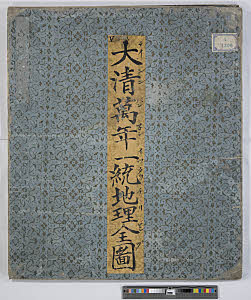 大清萬年一統地理全圖